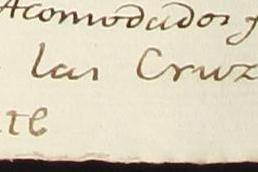 Acomodados
las Cruz
te